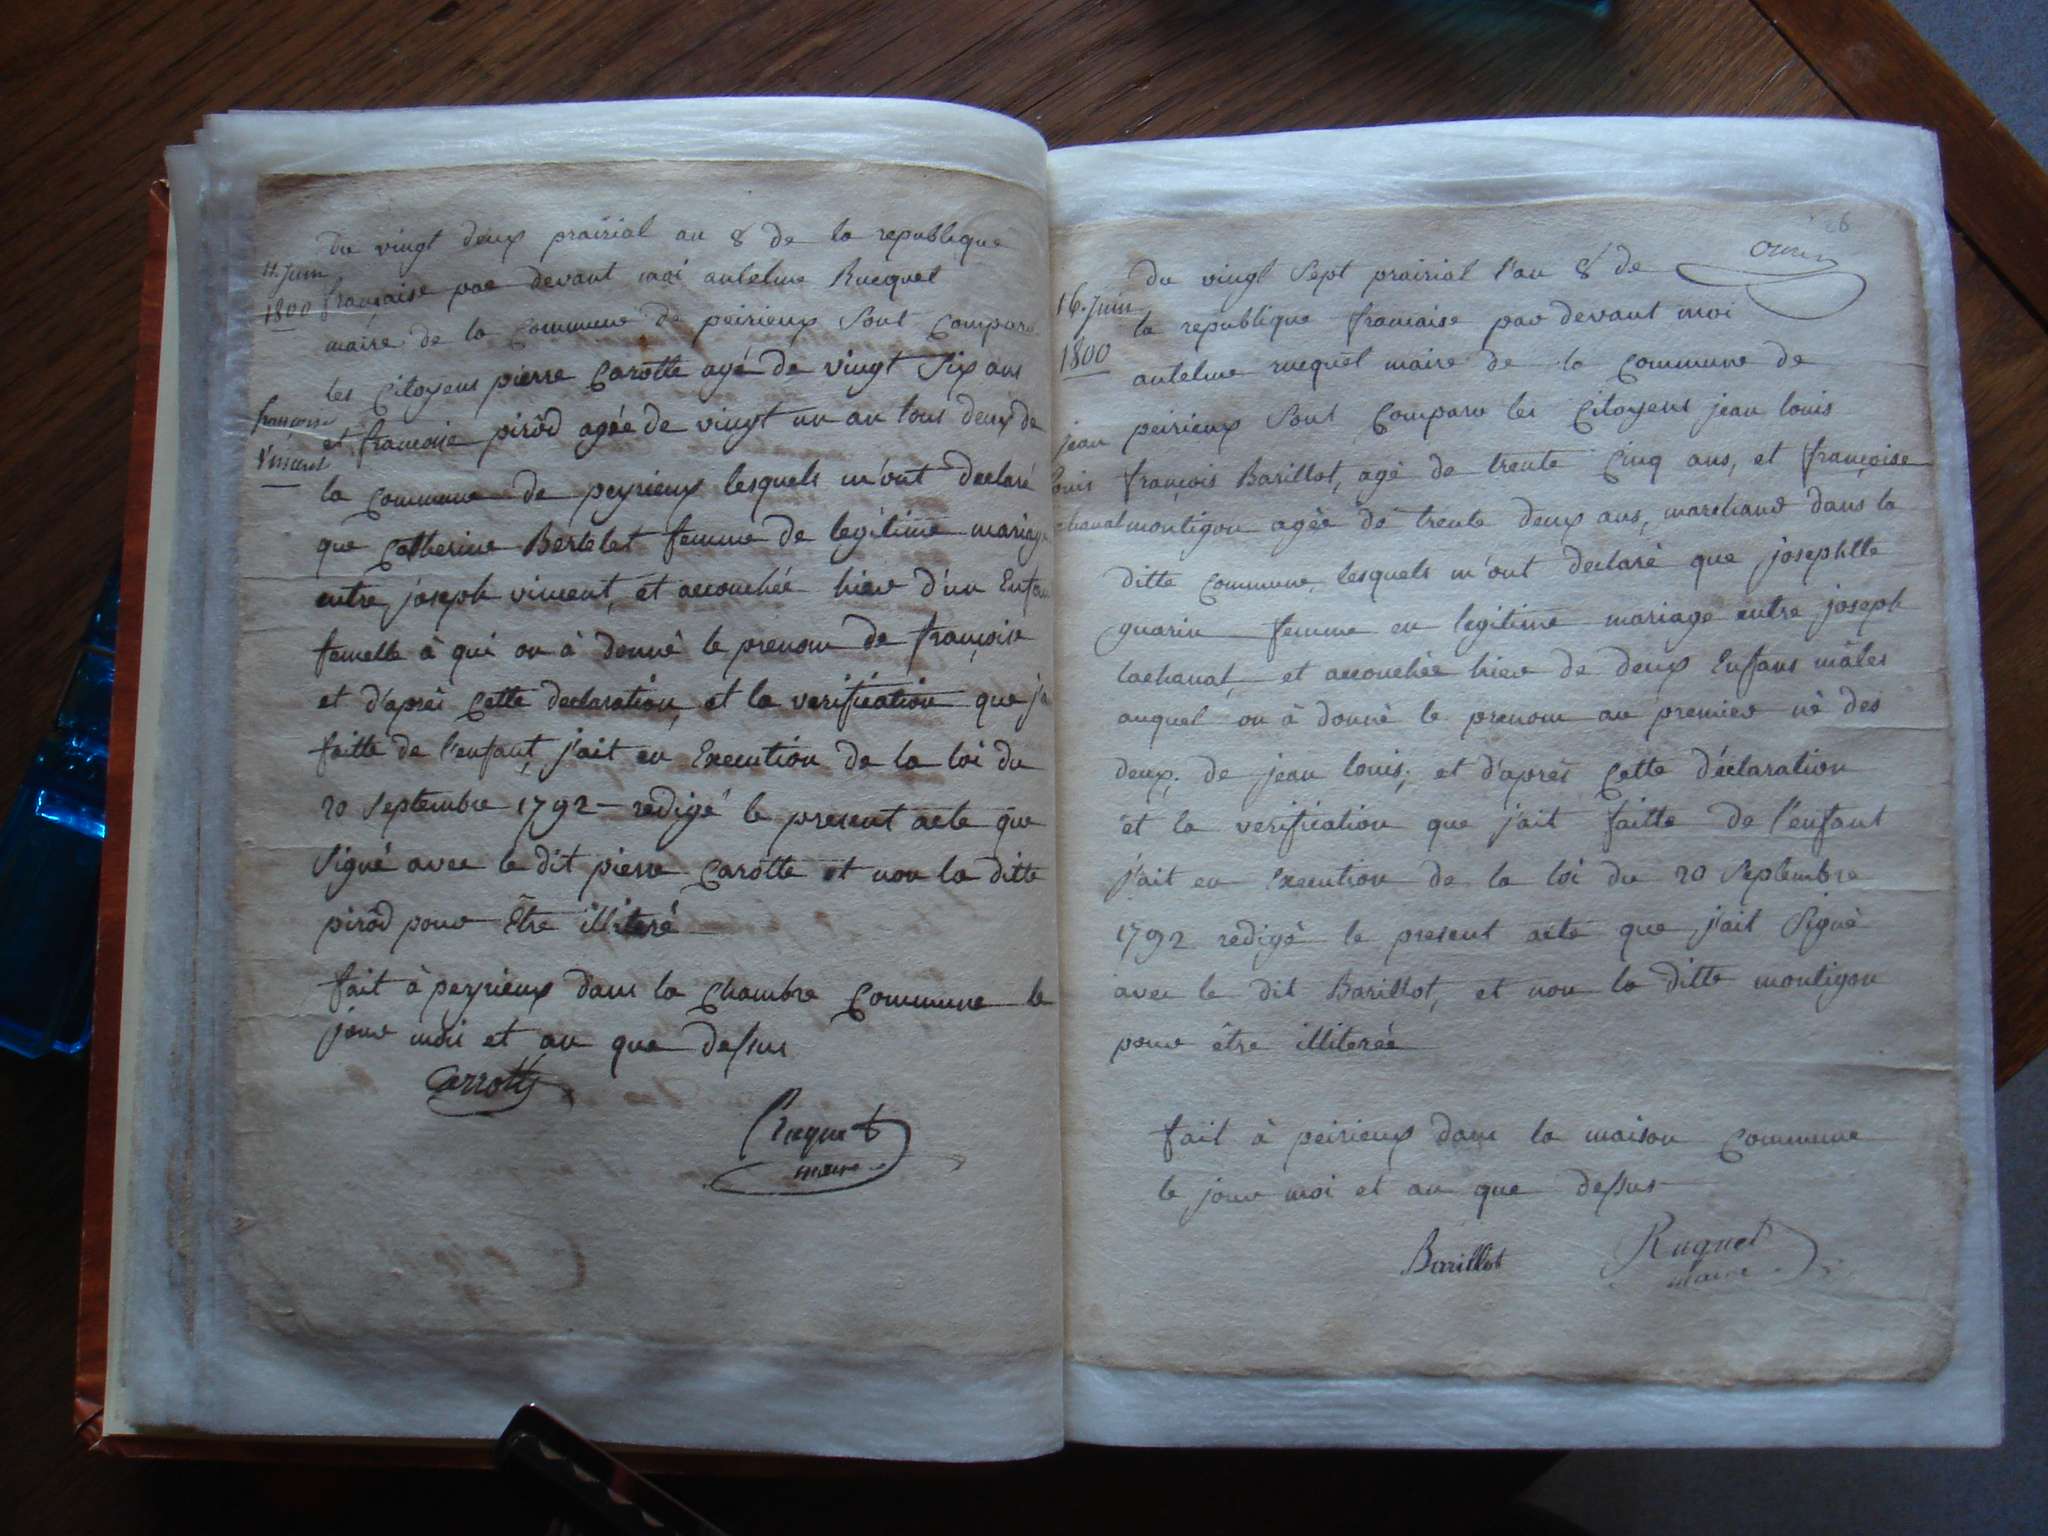 du vingt deux prairial an 8 de la republique
11. Juin
1800
française par devant moi antelme Rucquet
maire de la commune de peirieux sont comparu
les Citoyens pierre Carotte agé de vingt six ans
françoise
Vincent
et francoise pirôd agée de vingt un an tous deux de
la commune de peyrieux lesquels m'ont declaré
que Catherine Bertelet femme de legitime mariage
entre joseph vincent, et accouchée hier d'un Enfan
femelle à qui on à donné le prenom de françoise
et d'après cette declaration, et la verification que j'a
faitte de l'enfant, j'ait en Execution de la loi du
20 septembre 1792 - redigé le present acte que
signé avec le dit pierre Carotte et non la ditte
pirôd pour Être illiteré
fait à peyrieux dans la Chambre Commune le
jour moi et an que dessus
Carrotte
Rucquet
maire
26
du vingt sept prairial l'an 8 de
16. Juin
1800
la republique francaise par devant moi
antelme rucquet maire de la commune de
peirieux sont comparu les Citoyens jean louis
jean
louis
chanat
françois Barillot, agé de trente Cinq ans, et françoise
montigon agée de trente deux ans, marchand dans la
ditte commune, lesquels m'ont declaré que josephtte
guarin femme en legitime mariage entre joseph
lachanat, et accouchée hier de deux Enfans mâles
auquel on à donné le prenom au premier né des
deux, de jean louis; et d'après Cette déclaration
et la verification que j'ait faitte de l'enfant
j'ait en Execution de la loi du 20 septembre
1792 redigé le present acte que j'ait signé
avec le dit Barillot, et non la ditte montigon
pour être illiterée
fait à peirieux dans la maison Commune
le jour moi et an que dessus
Barillot
Ruquet
maire